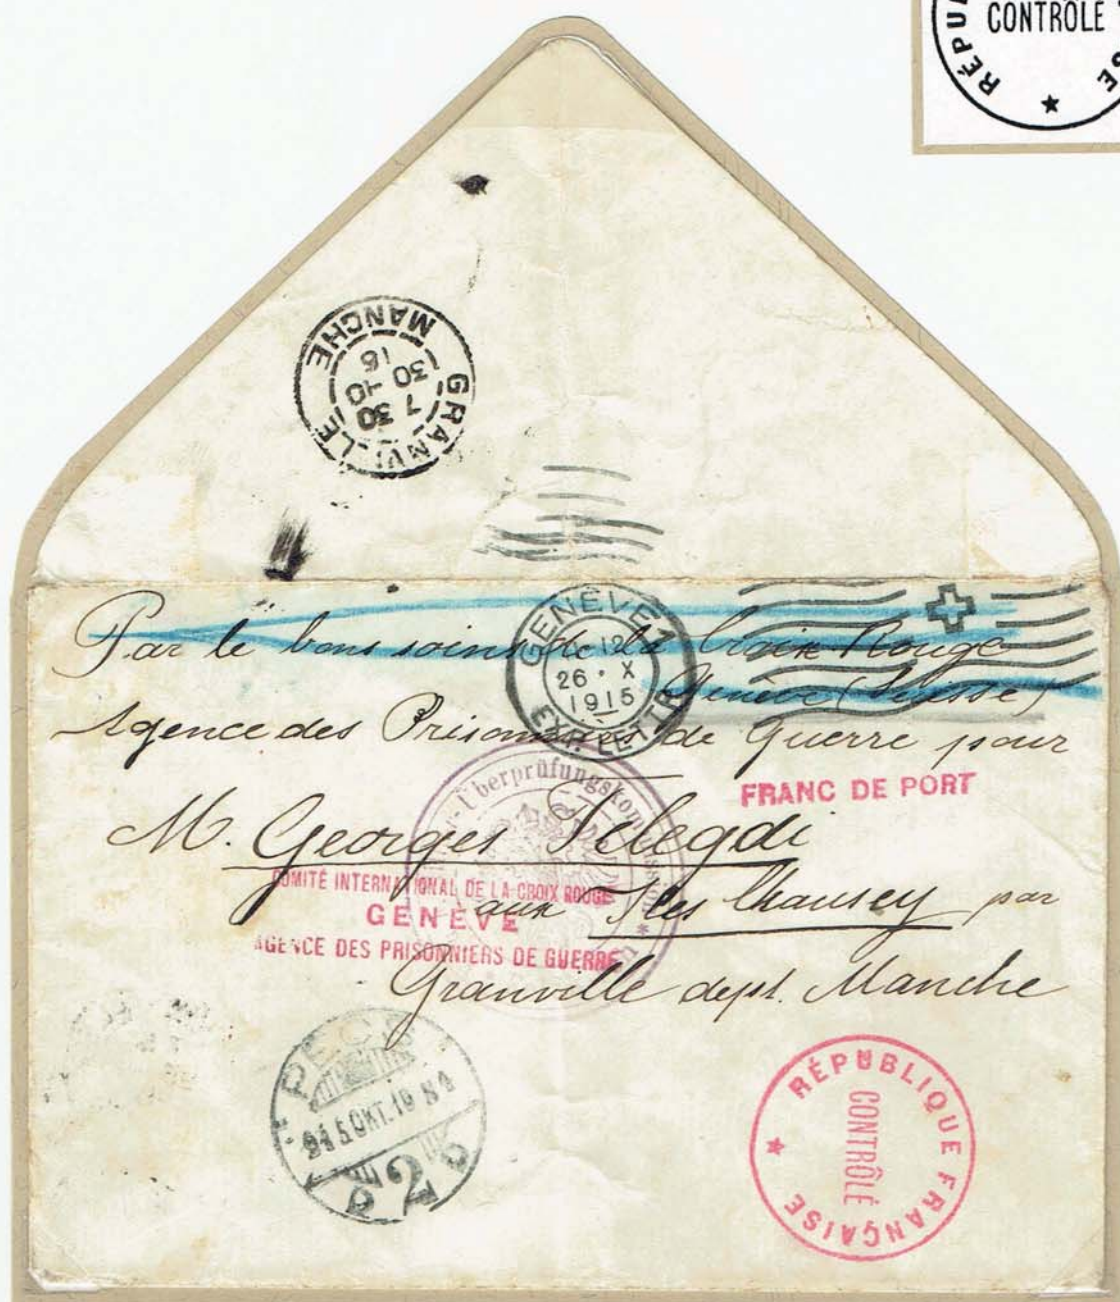 CONTRÔLE
RÉPU
★
GRANVILLE
7 30
30 - 10
MANCHE
Par le bons soins de la Croix Rouge
Genève (Suisse)
GENÈVE 1
26 · X
1915
EXP. LETTR.
Agence des Prisonniers de Guerre pour
FRANC DE PORT
Überprüfungskommission
M. Georges Telegdi
COMITÉ INTERNATIONAL DE LA CROIX ROUGE
GENÈVE
AGENCE DES PRISONNIERS DE GUERRE
aux Iles Chausey par
Granville dept. Manche
PÉCS
915 OKT. 19
2
★ RÉPUBLIQUE FRANÇAISE
CONTRÔLE